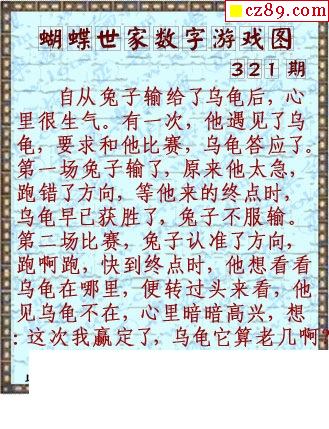 cz89.com
蝴蝶世家数字游戏图
321 期
自从兔子输给了乌龟后，心
里很生气。有一次，他遇见了乌
龟，要求和他比赛，乌龟答应了。
第一场兔子输了，原来他太急，
跑错了方向，等他来的终点时，
乌龟早已获胜了，兔子不服输。
第二场比赛，兔子认准了方向，
跑啊跑，快到终点时，他想看看
乌龟在哪里，便转过头来看，他
见乌龟不在，心里暗暗高兴，想
：这次我赢定了，乌龟它算老几啊？